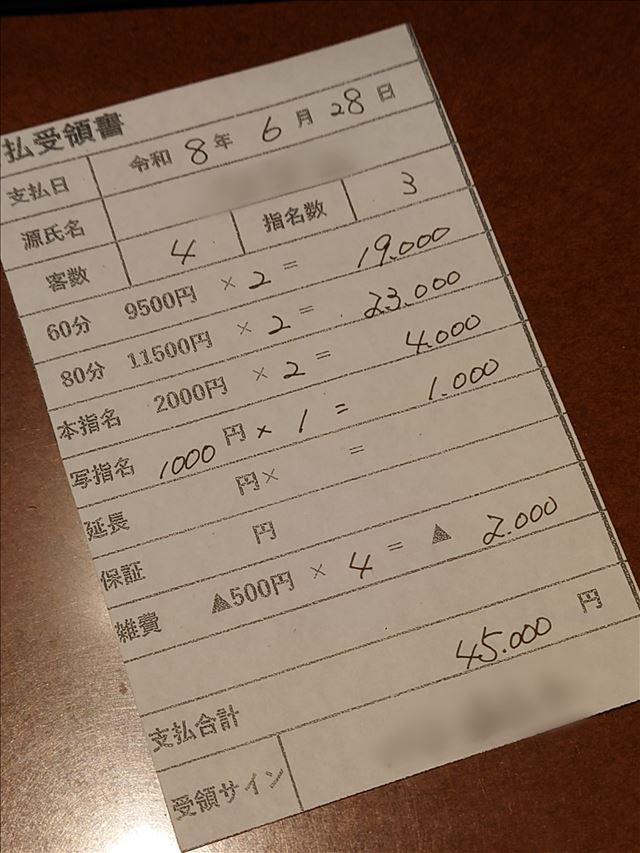 払受領書
支払日 令和 8年 6月 28日
源氏名
客数 4 指名数 3
60分 9500円 × 2 = 19.000
80分 11500円 × 2 = 23.000
本指名 2000円 × 2 = 4.000
写指名 1000円 × 1 = 1.000
延長 円× =
保証 円
雑費 ▲500円 × 4 = ▲ 2.000
支払合計 45.000 円
受領サイン